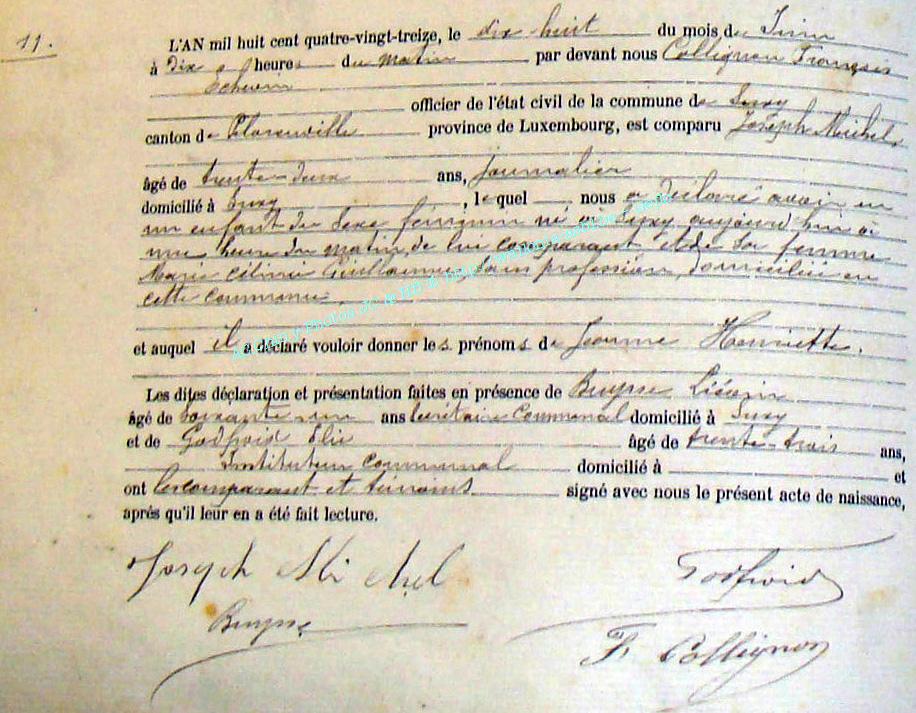 11.
L'AN mil huit cent quatre-vingt-treize, le dix-huit du mois de Juin
à dix heures du matin par devant nous Collignon François
Échevin
officier de l'état civil de la commune de Suxy
canton de Florenville province de Luxembourg, est comparu Joseph Michel
âgé de trente-deux ans, journalier
domicilié à Suxy, lequel nous a déclaré avoir eu
un enfant du sexe féminin né à Suxy aujourd'hui à
une heure du matin, de lui comparant et de sa femme
Marie Céline Guillaume, sans profession, domiciliée en
cette commune,
et auquel il a déclaré vouloir donner les prénoms de Jeanne Henriette.
Les dites déclaration et présentation faites en présence de Buysse Liévin
âgé de soixante-un ans Secrétaire Communal domicilié à Suxy
et de Godfroid Elie âgé de trente-trois ans,
Instituteur Communal domicilié à et
ont les comparant et témoins signé avec nous le présent acte de naissance,
aprés qu'il leur en a été fait lecture.
Joseph Michel
Godfroid
Buysse
F. Collignon